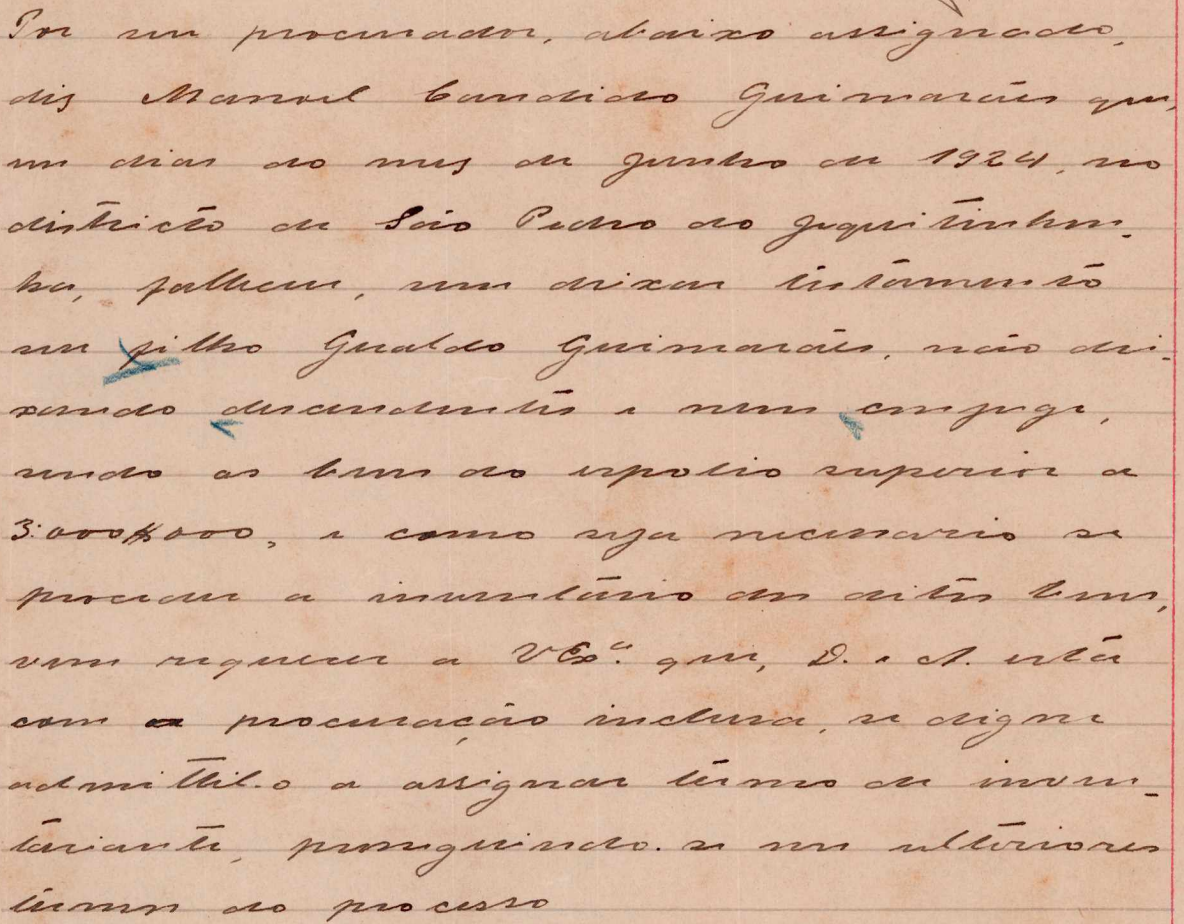 Por seu procurador, abaixo assignado,
diz Manoel Candido Guimarães que,
em dias do mez de Junho de 1924, no
districto de São Pedro do Jequitinhon-
ha, falleceu, sem deixar testamento
seu filho Gualdo Guimarães, não dei-
xando descendentes e nem conjuge,
sendo os bens do espolio superior a
3:000$000, e como seja necessario se
proceder a inventário dos ditos bens,
vem requerer a V Exª. que, D. e A. esta
com a procuração inclusa, se digne
admittil-o a assignar termo de inven-
tariante, proseguindo-se nos ulteriores
termos do processo